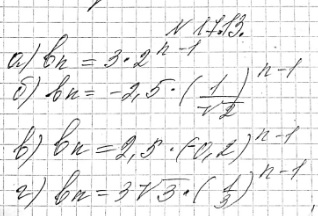 № 17.13.
а) bn = 3 · 2^(n-1)
б) bn = -2,5 · (1/√2)^(n-1)
в) bn = 2,5 · (-0,2)^(n-1)
г) bn = 3√3 · (1/3)^(n-1)